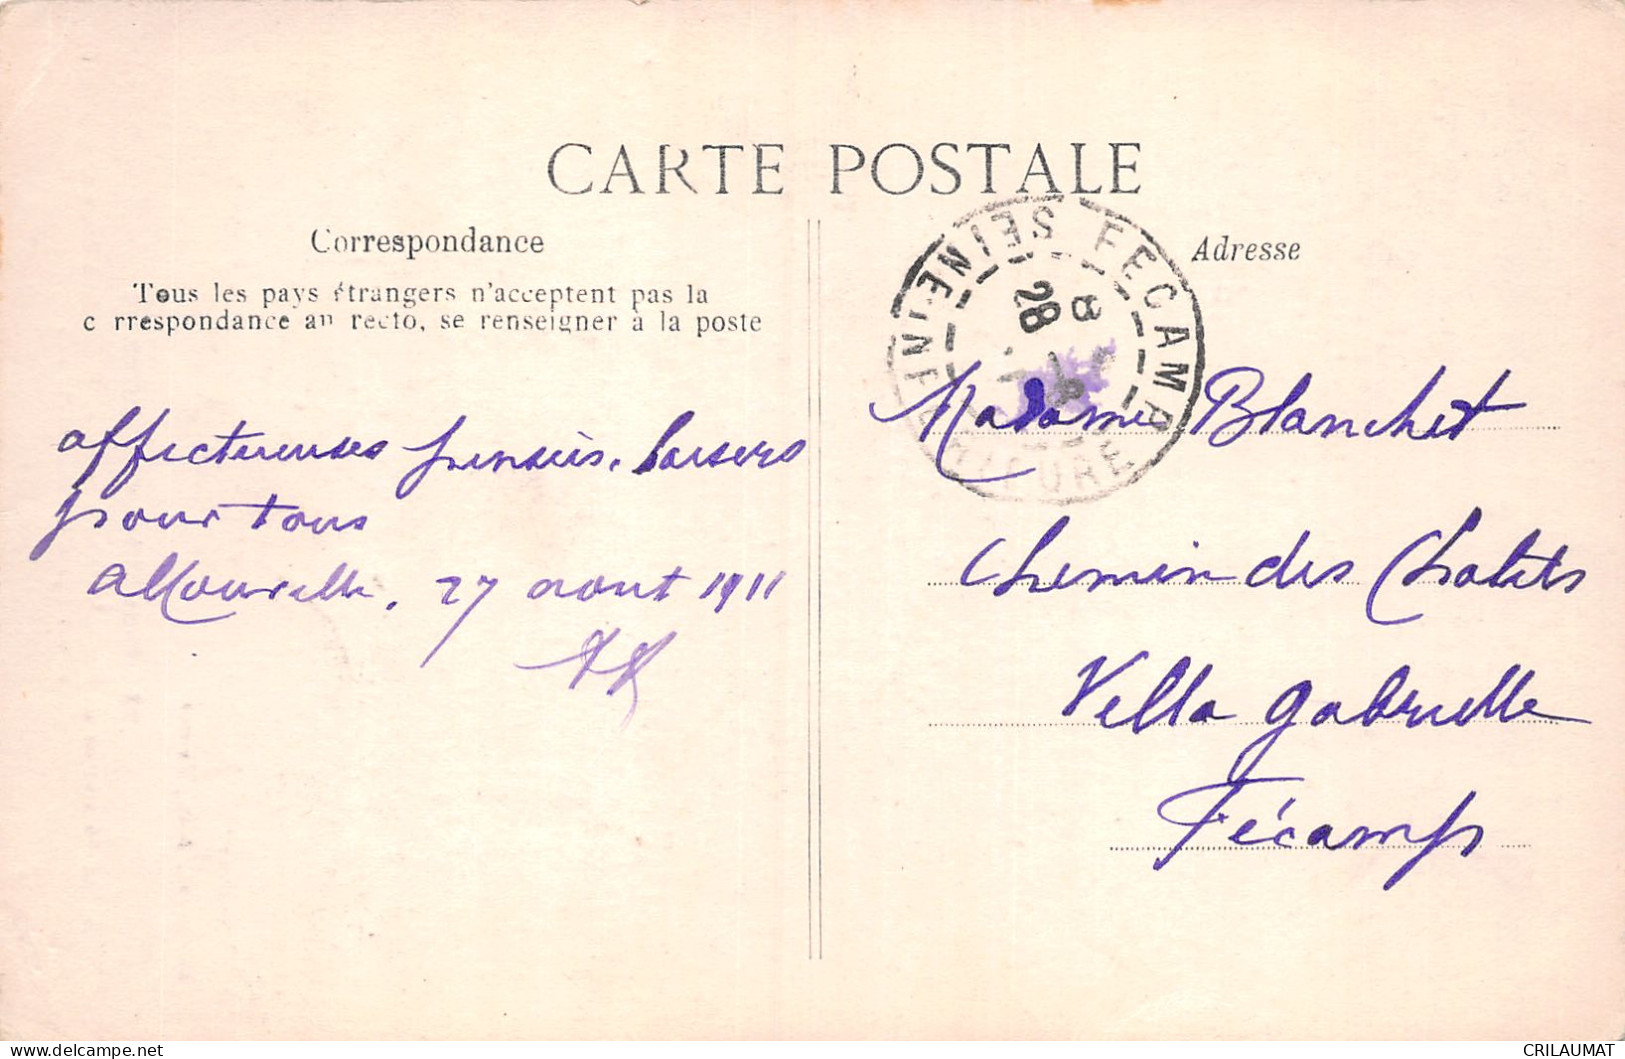 CARTE POSTALE
Correspondance
Tous les pays étrangers n'acceptent pas la
c rrespondance au recto, se renseigner à la poste
affectueuses pensées, baisers
pour tous
Allouville, 27 aout 1911
Adresse
FECAMP
SEINE-INFERIEURE
8
28
Madame Blanchet
Chemin des Chalets
Villa Gabrielle
Fécamp
CRILAUMAT